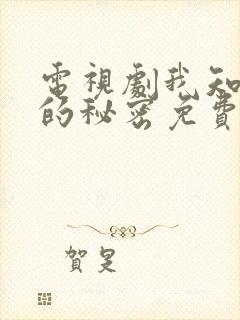 電視劇我知
的秘密免費
賀是